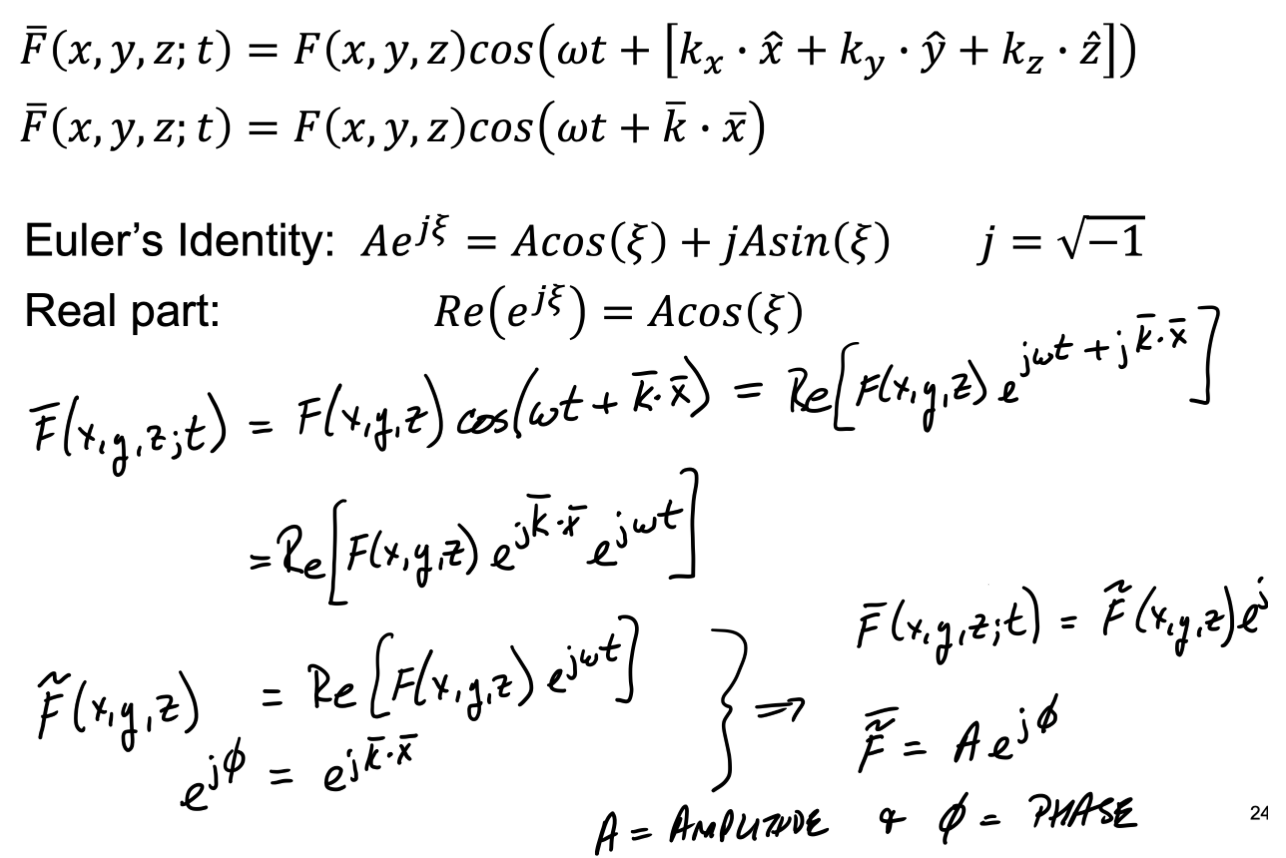 F̄(x, y, z; t) = F(x, y, z)cos(ωt + [kₓ · x̂ + k_y · ŷ + k_z · ẑ])
F̄(x, y, z; t) = F(x, y, z)cos(ωt + k̄ · x̄)
Euler's Identity: Ae^{jξ} = Acos(ξ) + jAsin(ξ) j = √−1
Real part: Re(e^{jξ}) = Acos(ξ)
F̄(x,y,z;t) = F(x,y,z) cos(ωt + k̄·x̄) = Re[F(x,y,z) e^{jωt + jk̄·x̄}]
= Re[F(x,y,z) e^{jk̄·x̄} e^{jωt}]
F̄(x,y,z;t) = F̃(x,y,z)e^{j
F̃(x,y,z) = Re[F(x,y,z) e^{jωt}] } ⇒
e^{jϕ} = e^{jk̄·x̄}
F̃̄ = A e^{jϕ}
A = AMPLITUDE & ϕ = PHASE
24